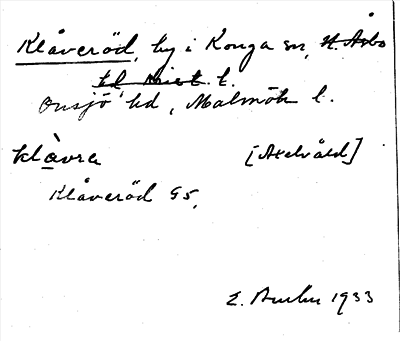 Klåveröd, by i Konga sn, N. Åsbo
hd, Krist. l.
Onsjö hd, Malmöh l.
klàvra [Axelvåld]
Klåveröd G5,
E. 1933